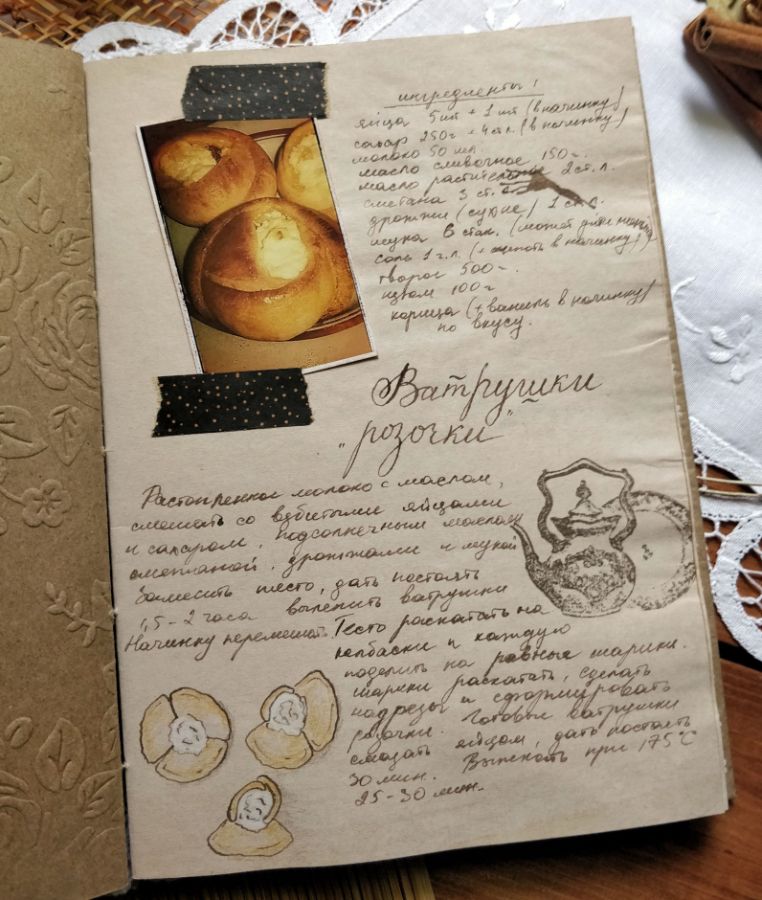 ингредиенты!
яйца 5шт + 1 шт (в начинку)
сахар 250г + 4ст.л. (в начинку)
молоко 50 мл.
масло сливочное 150 г.
масло растительное 2ст. л.
сметана 3 ст.
дрожжи (сухие) 1 ст. л.
мука 6 стак. (может
соль 1 ч.л. (+ щепоть в начинку)
творог 500 г.
изюм 100 г
корица (+ ваниль в начинку)
по вкусу.
Ватрушки
"розочки"
Растопленное молоко с маслом,
смешать со взбитыми яйцами
и сахаром, подсолнечным маслом
сметаной, дрожжами и мукой
Замесить тесто, дать постоять
1,5-2 часа вылепить ватрушки
Начинку перемешать.
Тесто раскатать на
колбаски и каждую
поделить на равные шарики.
Шарики раскатать, сделать
надрезы и сформировать
розочки. Готовые ватрушки
смазать яйцом, дать постоять
30 мин. Выпекать при 175°C
25-30 мин.